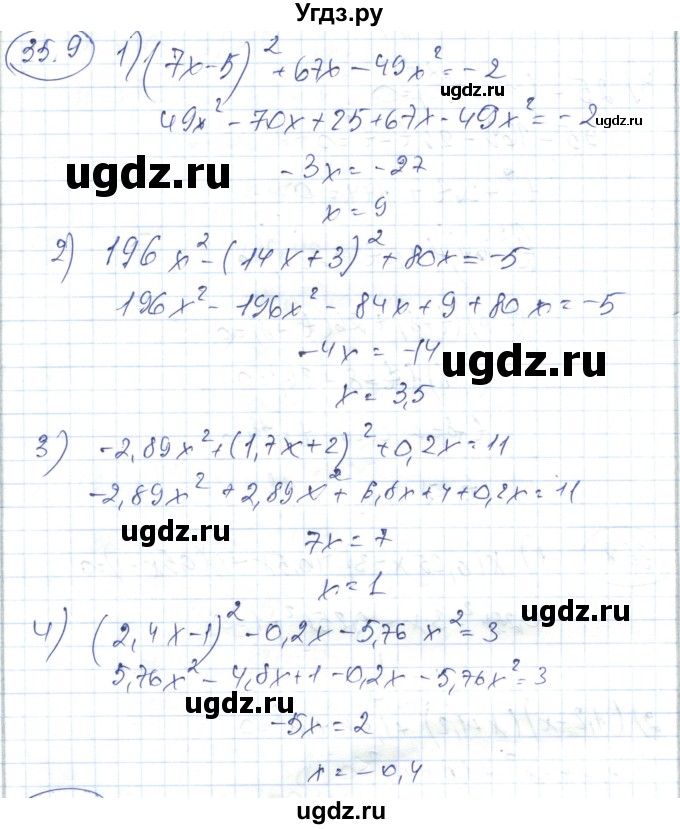 Угдз.ру
35.9 1) (7x-5)² + 67x - 49x² = -2
ugdz.ru
49x² - 70x + 25 + 67x - 49x² = -2
ugdz.ru
-3x = -27
ugdz.ru
x = 9
2) 196x² - (14x+3)² + 80x = -5
196x² - 196x² - 84x + 9 + 80x = -5
-4x = -14
ugdz.ru
x = 3,5
3) -2,89x² + (1,7x+2)² + 0,2x = 11
-2,89x² + 2,89x² + 6,8x + 4 + 0,2x = 11
ugdz.ru
7x = 7
x = 1
ugdz.ru
4) (2,4x-1)² - 0,2x - 5,76x² = 3
5,76x² - 4,8x + 1 - 0,2x - 5,76x² = 3
-5x = 2
x = -0,4
ugdz.ru
ugdz.ru
ugdz.ru